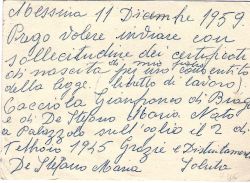 Messina 11 Dicembre 1959
Prego volere inviare con
sollecitudine dei certificati
di nascita di mio figlio per uso consentito
dalla legge. (libretto di lavoro)
Cacciola Gianfranco di Biagio
e di De Stefano Maria Nato
a Palazzolo sull'oglio il 2 di
Febbraio 1945 Grazie e Distintamente
De Stefano Maria Saluta